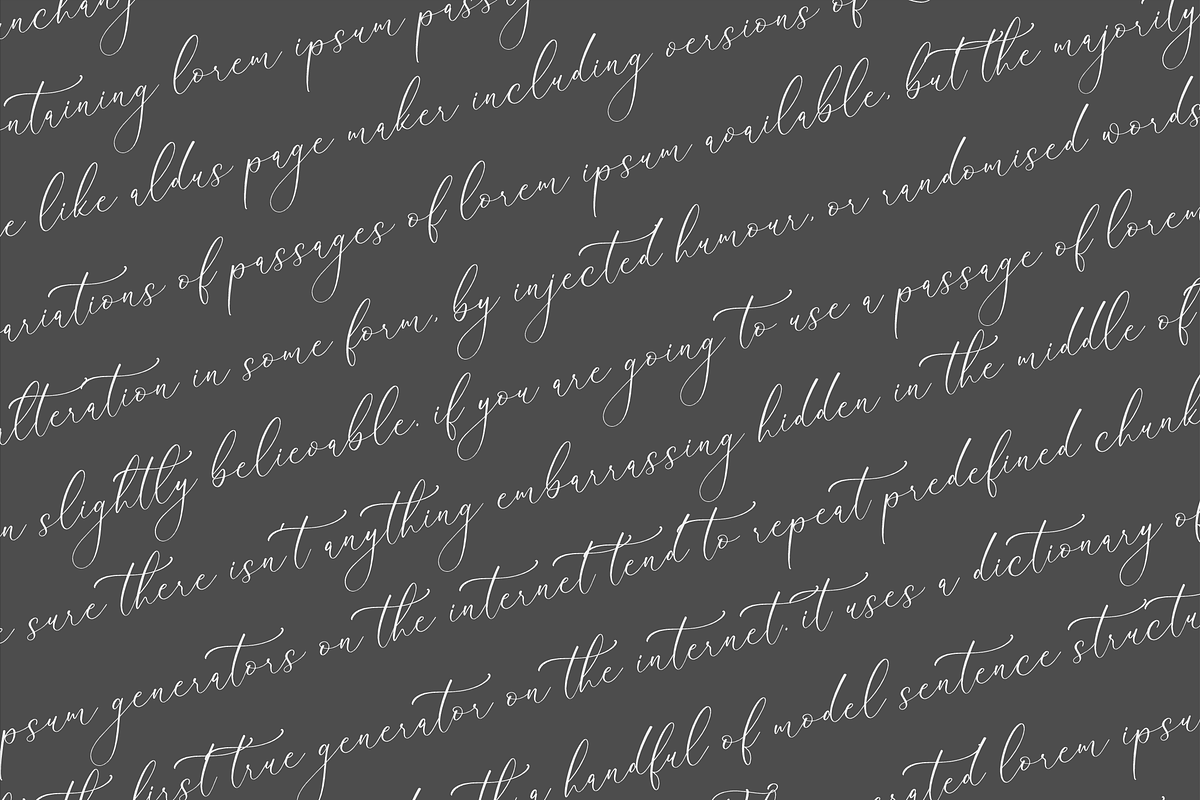 nchang
ntaining lorem ipsum passag
e like aldus page maker including versions of
ariations of passages of lorem ipsum available, but the majority
alteration in some form, by injected humour, or randomised words
n slightly believable. if you are going to use a passage of lorem
e sure there isn't anything embarrassing hidden in the middle of
psum generators on the internet tend to repeat predefined chunk
first true generator on the internet. it uses a dictionary of
a handful of model sentence structu
erated lorem ipsu